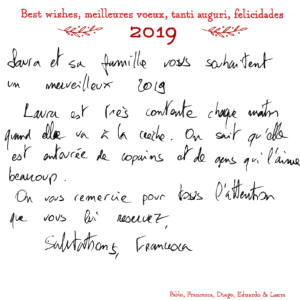 Best wishes, meilleures voeux, tanti auguri, felicidades
2019
Laura et sa famille vous souhaitent
un merveilleux 2019
Laura est très contente chaque matin
quand elle va à la creche. On sait qu'elle
est entourée de copains et de gens qui l'aime
beaucoup.
On vous remercie pour tous l'attention
que vous lui reservez,
Salutations, Francesca
Pablo, Francesca, Diego, Eduardo & Laura